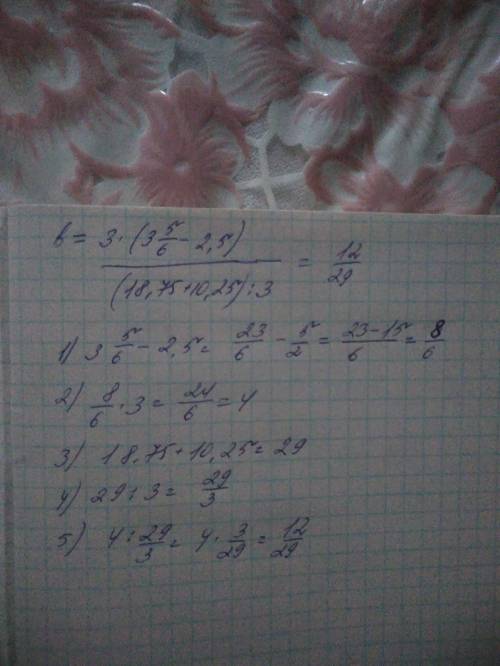 b = 3·(3 5/6 - 2,5) / (18,75+10,25):3 = 12/29
1) 3 5/6 - 2,5 = 23/6 - 5/2 = 23-15/6 = 8/6
2) 8/6 · 3 = 24/6 = 4
3) 18,75+10,25 = 29
4) 29 : 3 = 29/3
5) 4 : 29/3 = 4 · 3/29 = 12/29